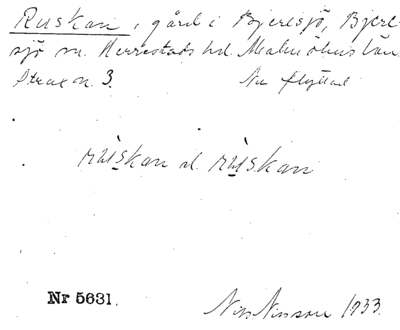 Ruskan, gård i Bjeresjö, Bjere-
sjö sn. Herrestads hd. Malmöhus län.
Strax n. 3. Nu flyttad
ruskan el. ruskan
Nr 5631.
Nils Nilsson 1933.